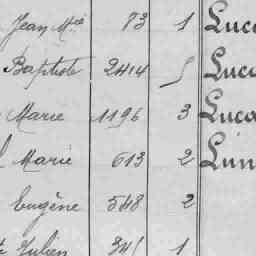 Jean Mie 73 1 Luc
Baptiste 2414 5 Luc
Marie 1196 3 Luca
Marie 613 2 Lun
Eugène 548 2
Julien 345 1